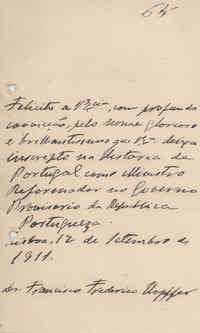 64
Felicito a V. Exª, com profunda
convicção, pelo nome glorioso
e brilhantissimo que V. Exª deixa
inscripto na Historia de
Portugal como Ministro
Reformador no Governo
Provisorio da Republica
Portugueza.
Lisboa, 12 de Setembro de
1911.
Dr. Francisco Frederico Hopffer